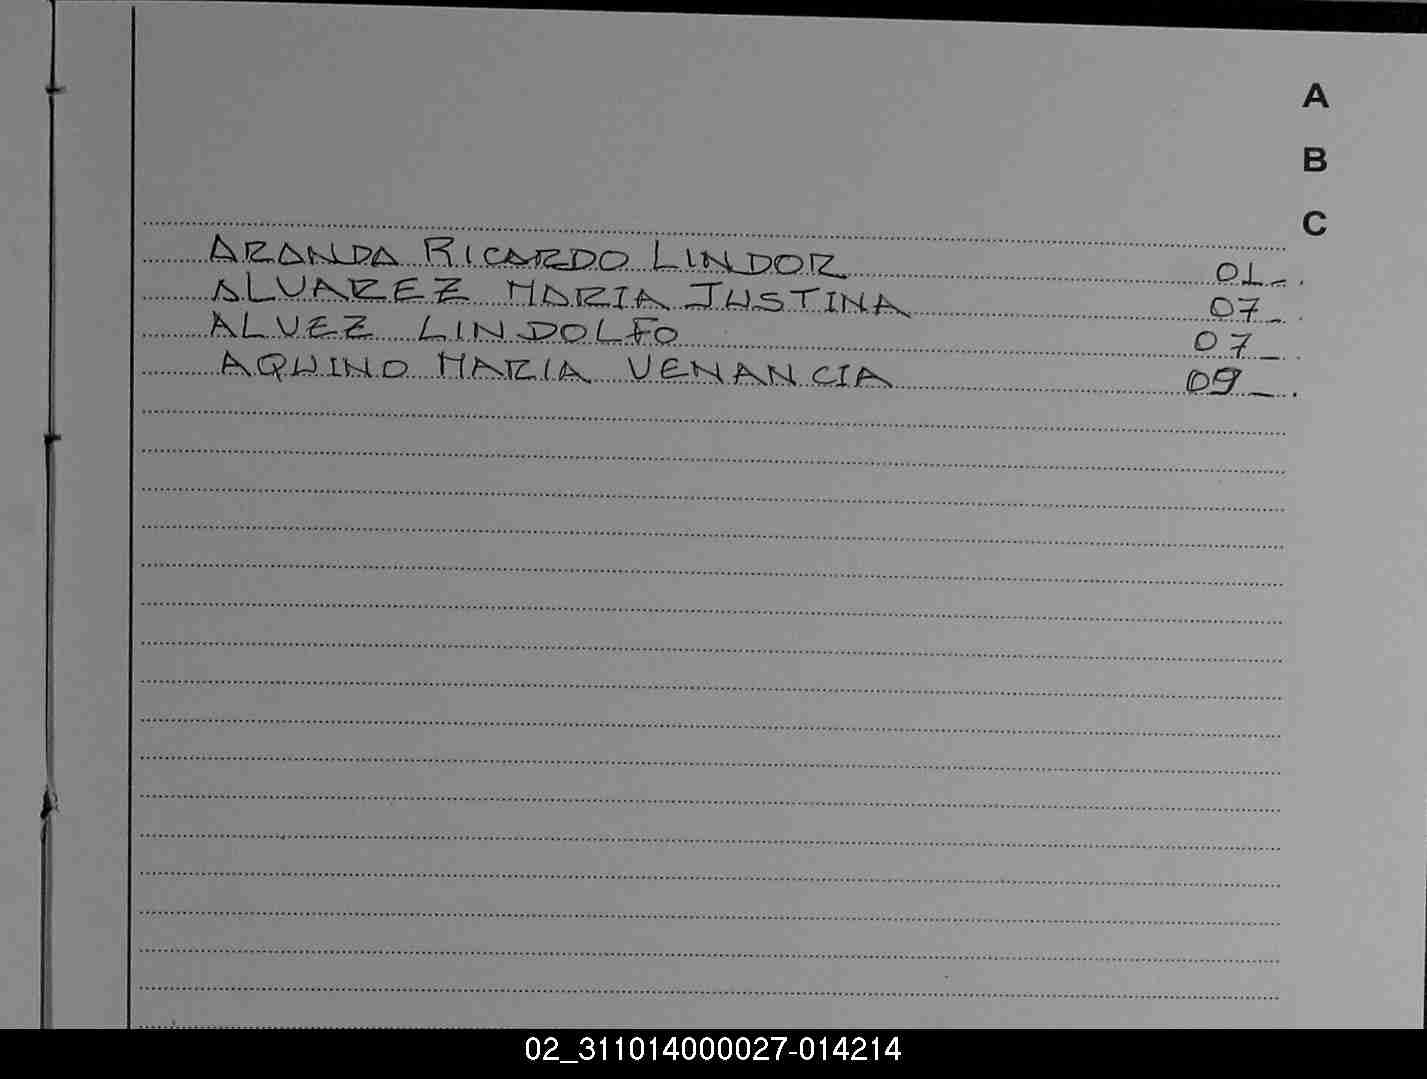 A
B
C
ARANDA RICARDO LINDOR 01_.
ALVAREZ MARIA JUSTINA 07_.
ALVEZ LINDOLFO 07_.
AQUINO MARIA VENANCIA 09_.
02_311014000027-014214